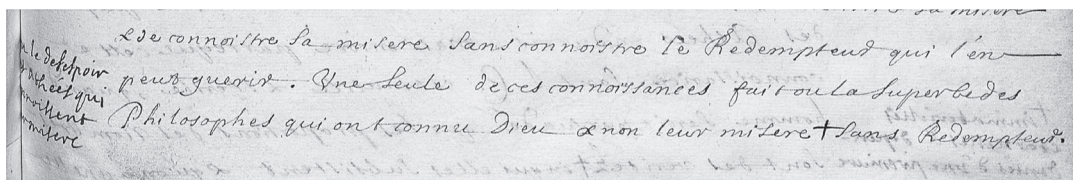 sa misere
& de connoistre sa misere sans connoistre le Redempteur qui l'en
peut guerir. Une seule de ces connoissances fait ou la superbe des
Philosophes qui ont connu Dieu & non leur misere + sans Redempteur.
le desespoir
athées qui
misere